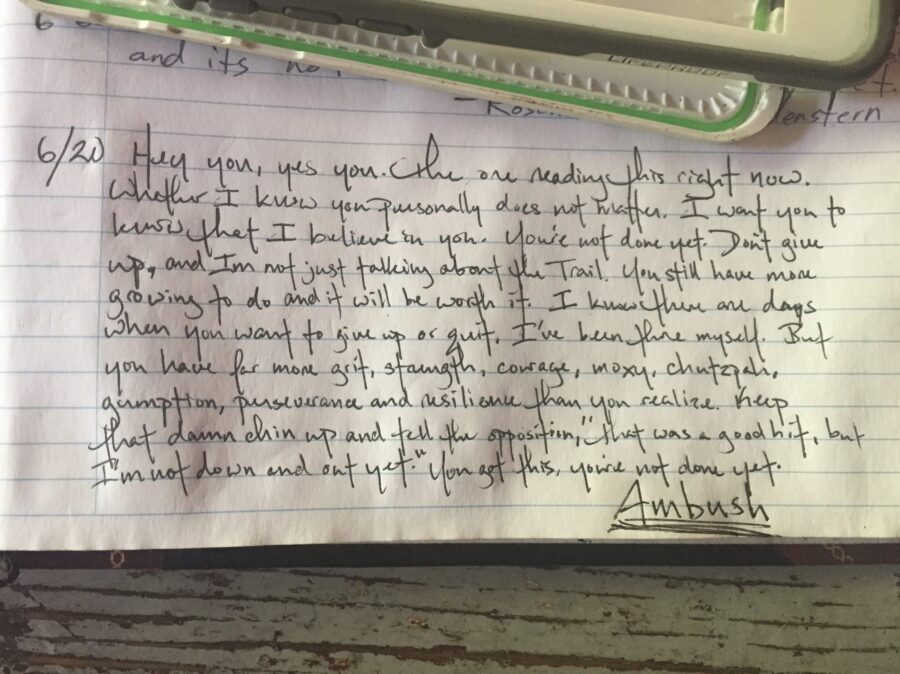 and its no
LIFEPROOF
- Rosen
denstern
6/20 Hey you, yes you. The one reading this right now.
Whether I know you personally does not matter. I want you to
know that I believe in you. You're not done yet. Don't give
up, and I'm not just talking about the Trail. You still have more
growing to do and it will be worth it. I know there are days
when you want to give up or quit. I've been there myself. But
you have far more grit, strength, courage, moxy, chutzpah,
gumption, perseverance and resilience than you realize. Keep
that damn chin up and tell the opposition, "that was a good hit, but
I'm not down and out yet." You got this, you're not done yet.
Ambush